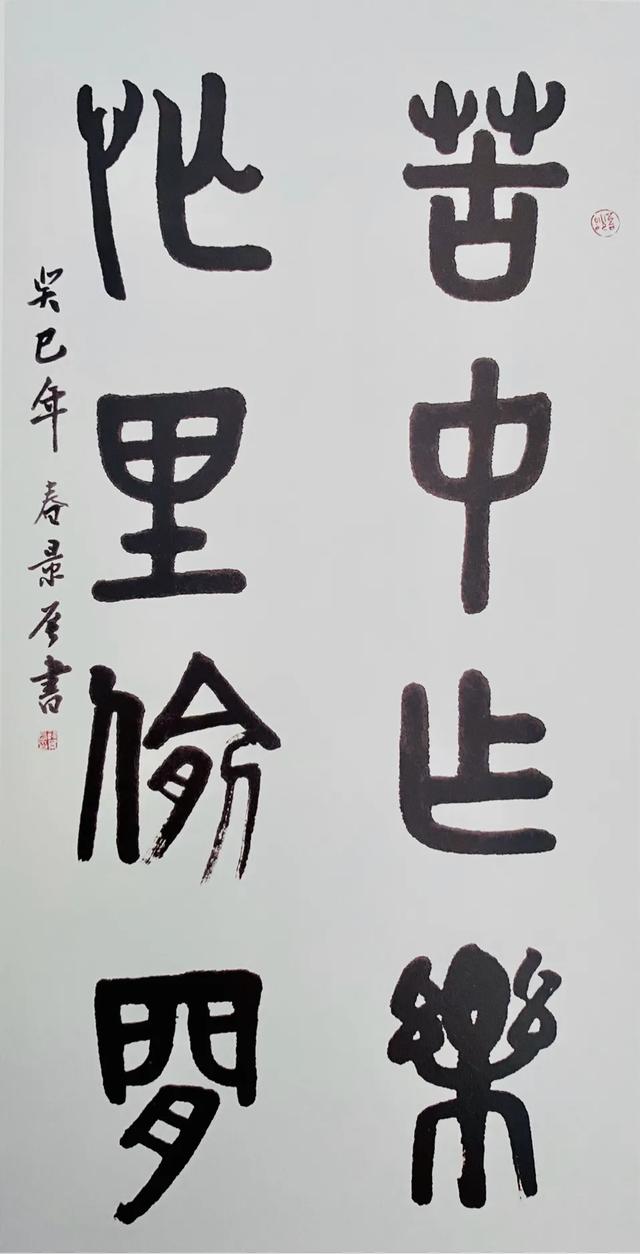 苦中乍樂
忙里偷閒
癸巳年春景書